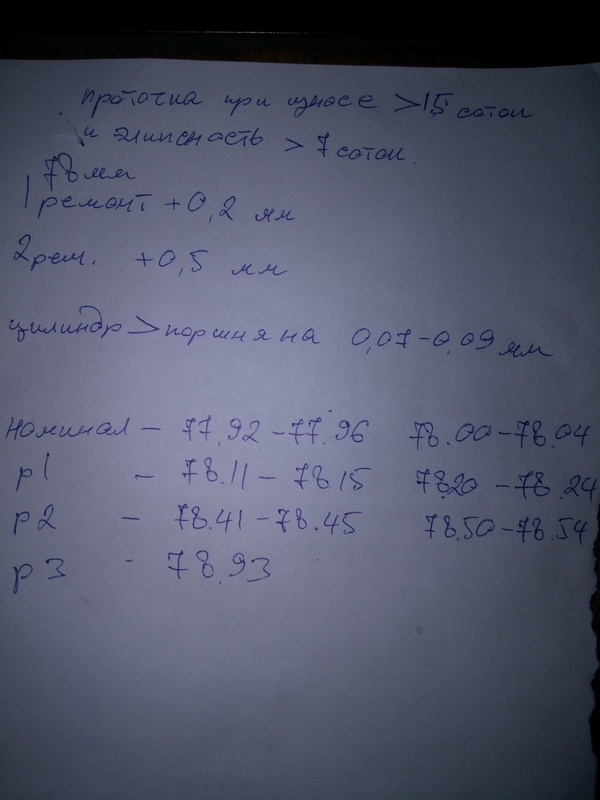 проточка при износе >15 соток
и элипсность > 7 соток.
78 мм
1 ремонт +0,2 мм
2 рем. +0,5 мм
цилиндр > поршня на 0,07-0,09 мм
Номинал - 77.92 - 77.96 78.00 - 78.04
р1 - 78.11 - 78.15 78.20 - 78.24
р2 - 78.41 - 78.45 78.50 - 78.54
р3 - 78.93